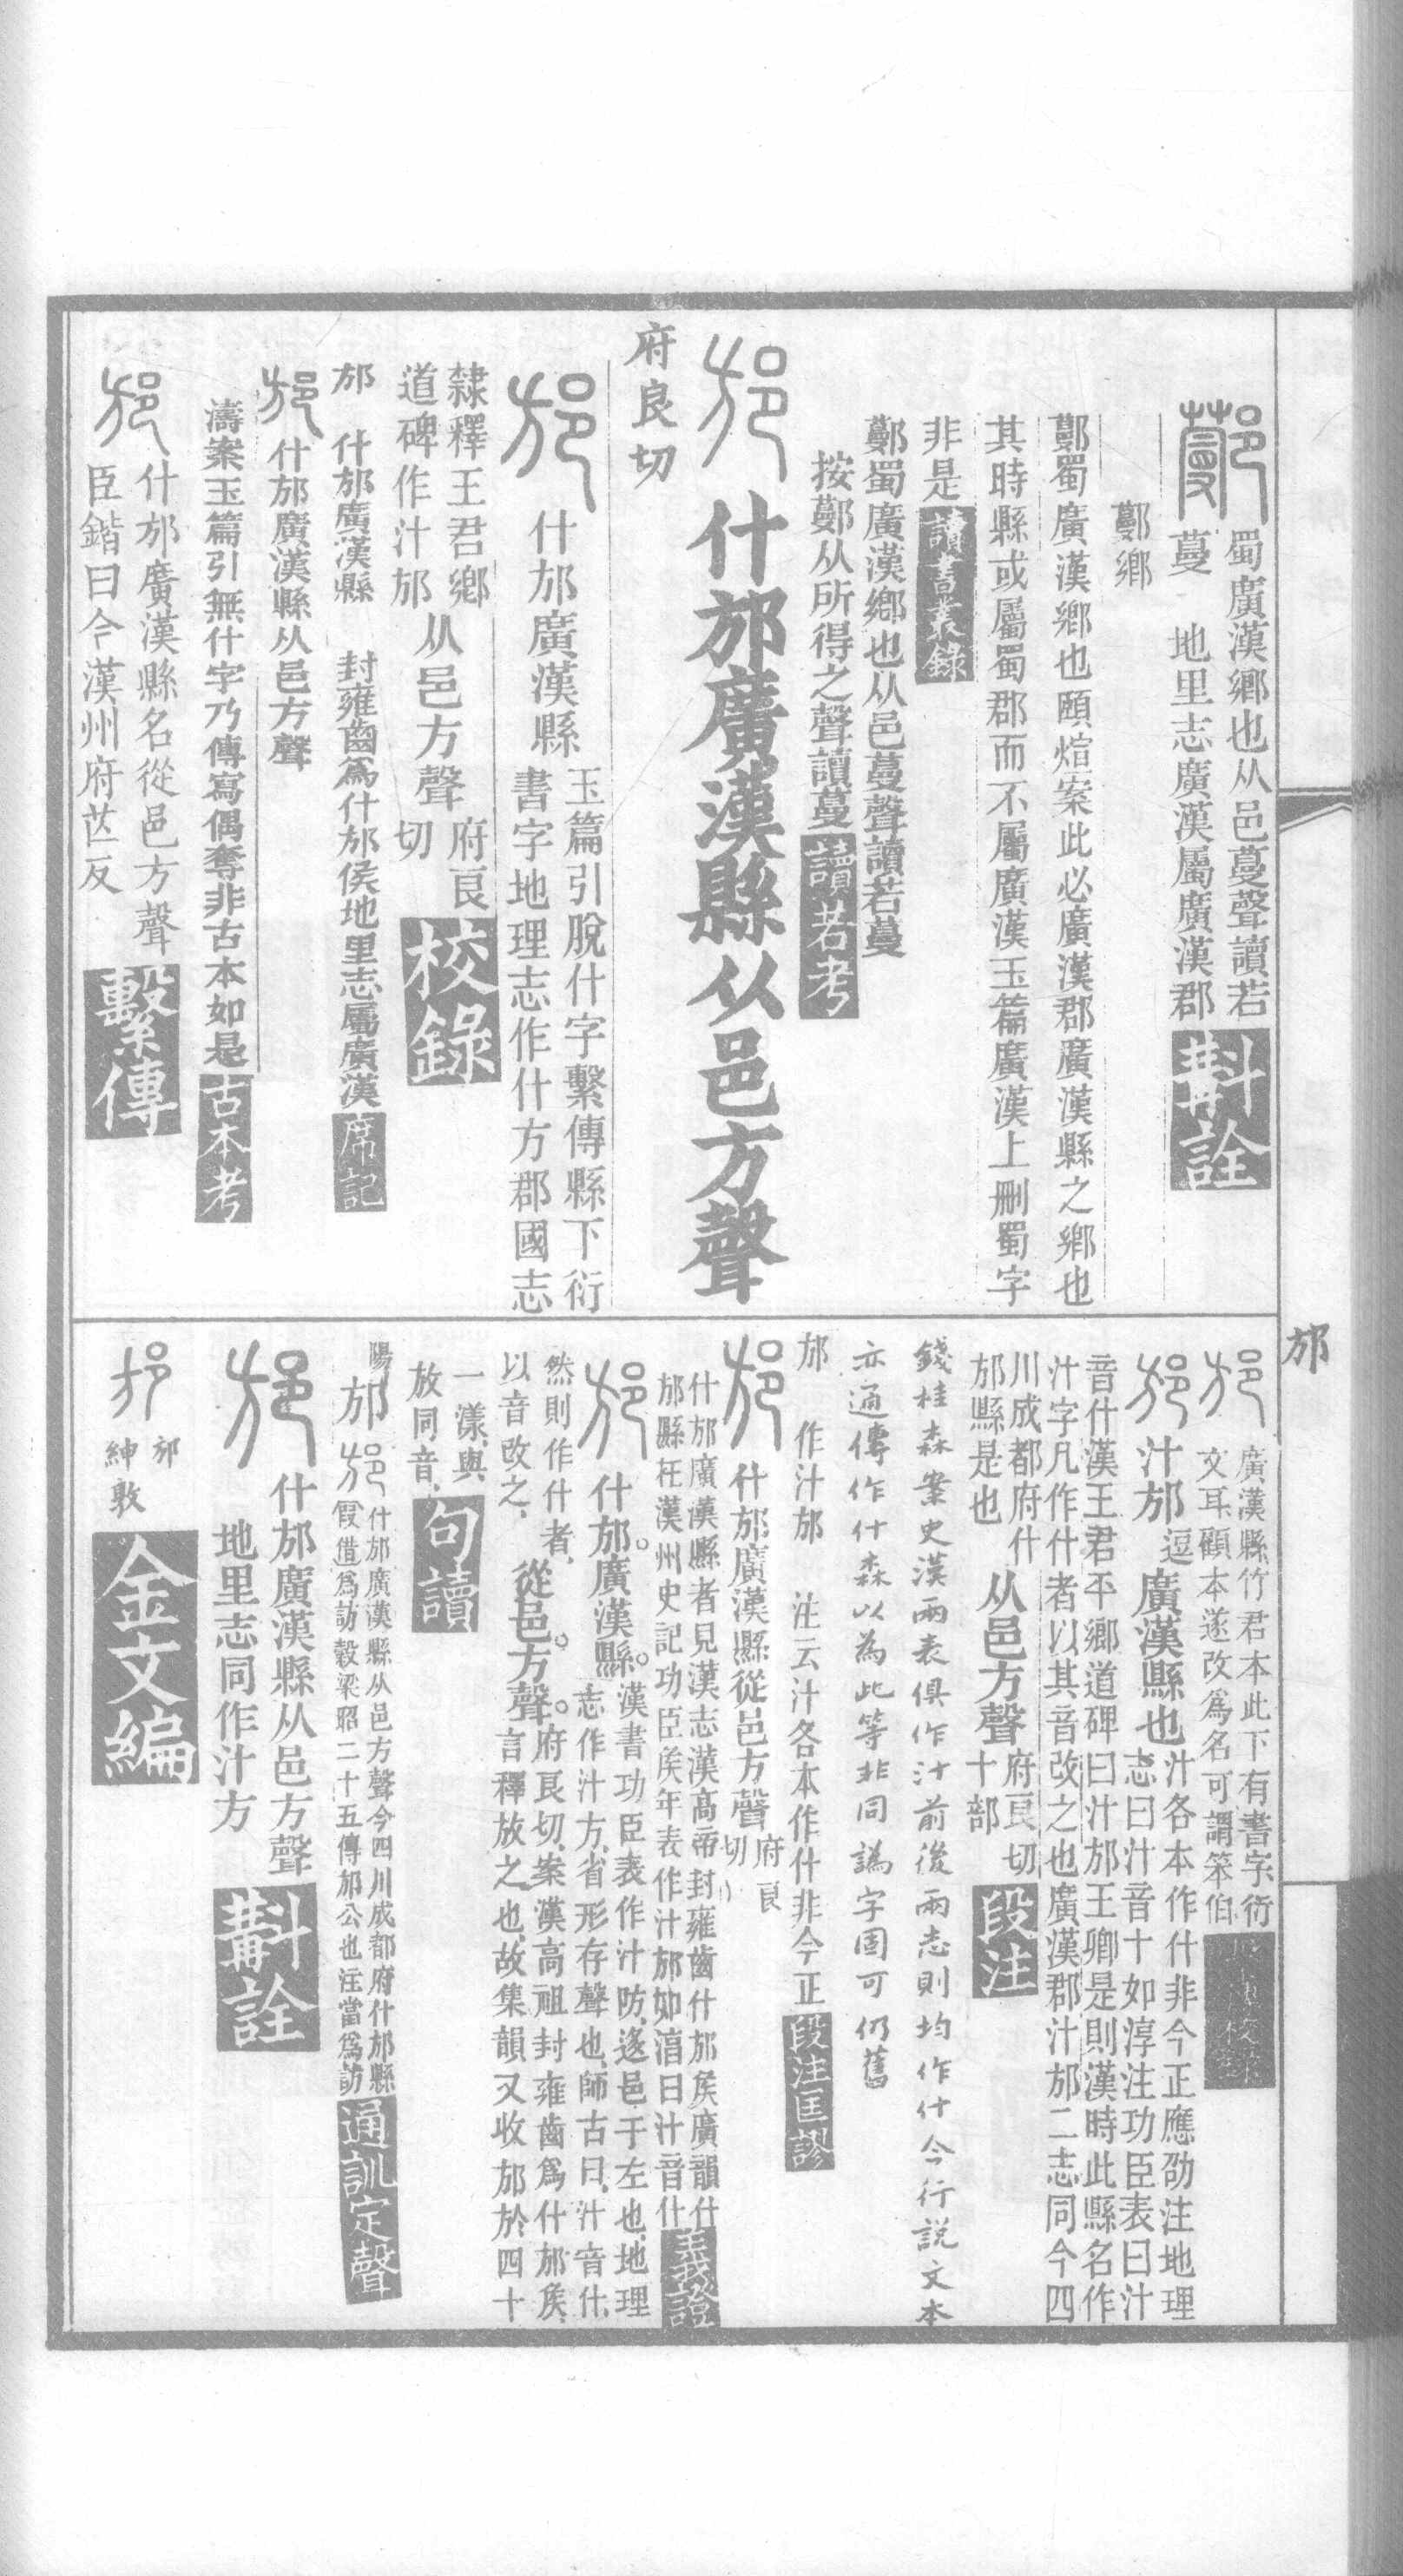 蜀廣漢鄉也从邑蔓聲讀若
蔓 地里志廣漢屬廣漢郡
斠詮
鄤鄉
鄤蜀廣漢鄉也頤煊案此必廣漢郡廣漢縣之鄉也
其時縣或屬蜀郡而不屬廣漢玉篇廣漢上刪蜀字
非是 讀書叢錄
鄤蜀廣漢鄉也从邑蔓聲讀若蔓
按鄤从所得之聲讀蔓 讀若考
什邡廣漢縣从邑方聲
府良切
什邡廣漢縣
玉篇引脫什字繫傳縣下衍
書字地理志作什方郡國志
隸釋王君鄉
道碑作汁邡
从邑方聲
府良
切
校錄
邡 什邡廣漢縣 封雍齒爲什邡侯地里志屬廣漢 席記
什邡廣漢縣从邑方聲
濤案玉篇引無什字乃傳寫偶奪非古本如是 古本考
什邡廣漢縣名從邑方聲
臣鍇曰今漢州府芒反
繫傳
邡
廣漢縣竹君本此下有書字衍
文耳顧本遂改爲名可謂笨伯
汁邡
逗
廣漢縣也
汁各本作什非今正應劭注地理
志曰汁音十如淳注功臣表曰汁
音什漢王君平鄉道碑曰汁邡王卿是則漢時此縣名作
汁字凡作什者以其音改之也廣漢郡汁邡二志同今四
川成都府什
邡縣是也
从邑方聲
府良切
十部
段注
錢桂森案史漢兩表俱作汁前後兩志則均作什今行說文本
亦通傳作什森以為此等非同譌字固可仍舊
邡 作汁邡 注云汁各本作什非今正 段注匡謬
什邡廣漢縣從邑方聲
府良
切
什邡廣漢縣者見漢志漢高帝封雍齒什邡矦廣韻什
邡縣在漢州史記功臣矦年表作汁邡如湻曰汁音什
義證
什邡。廣漢縣。
漢書功臣表作汁防、遂邑于左也、地理
志作汁方、省形存聲也、師古曰、汁音什、
然則作什者、
以音改之、
從邑。方聲。
府良切、案漢高祖封雍齒爲什邡矦、
言釋放之也、故集韻又收邡於四十
一漾、與
放同音、
句讀
陽
邡
什邡廣漢縣从邑方聲今四川成都府什邡縣
假借爲訪穀梁昭二十五傳邡公也注當爲訪
通訓定聲
什邡廣漢縣从邑方聲
地里志同作汁方
斠詮
邡
紳敦
金文編